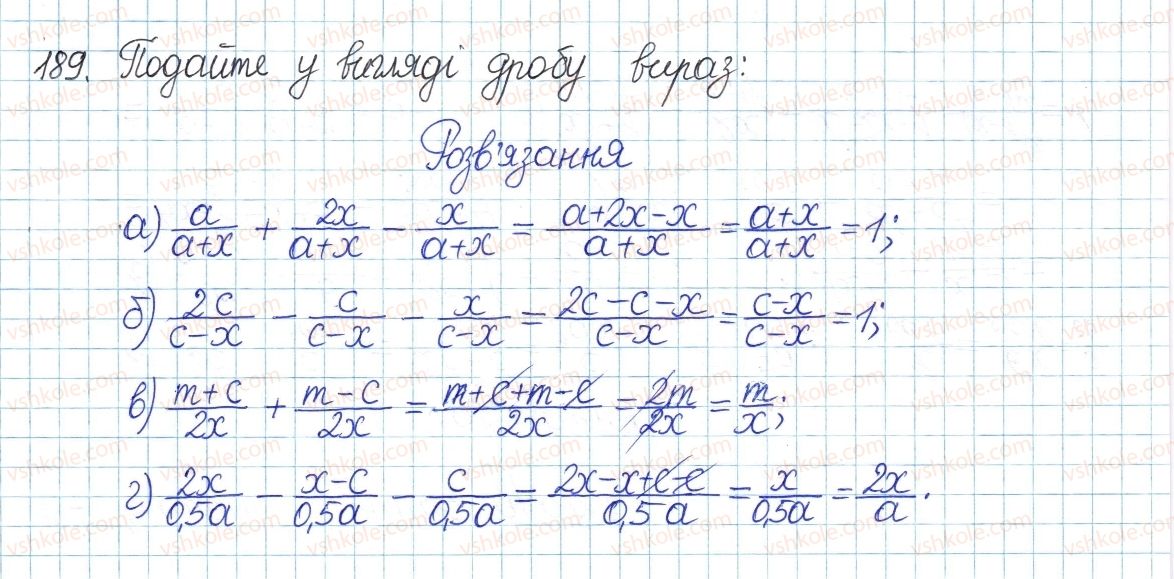 189. Подайте у вигляді дробу вираз:
Розв'язання
а) a/(a+x) + 2x/(a+x) − x/(a+x) = (a+2x−x)/(a+x) = (a+x)/(a+x) = 1;
б) 2c/(c−x) − c/(c−x) − x/(c−x) = (2c−c−x)/(c−x) = (c−x)/(c−x) = 1;
в) (m+c)/2x + (m−c)/2x = (m+c+m−c)/2x = 2m/2x = m/x;
г) 2x/0,5a − (x−c)/0,5a − c/0,5a = (2x−x+c−c)/0,5a = x/0,5a = 2x/a.